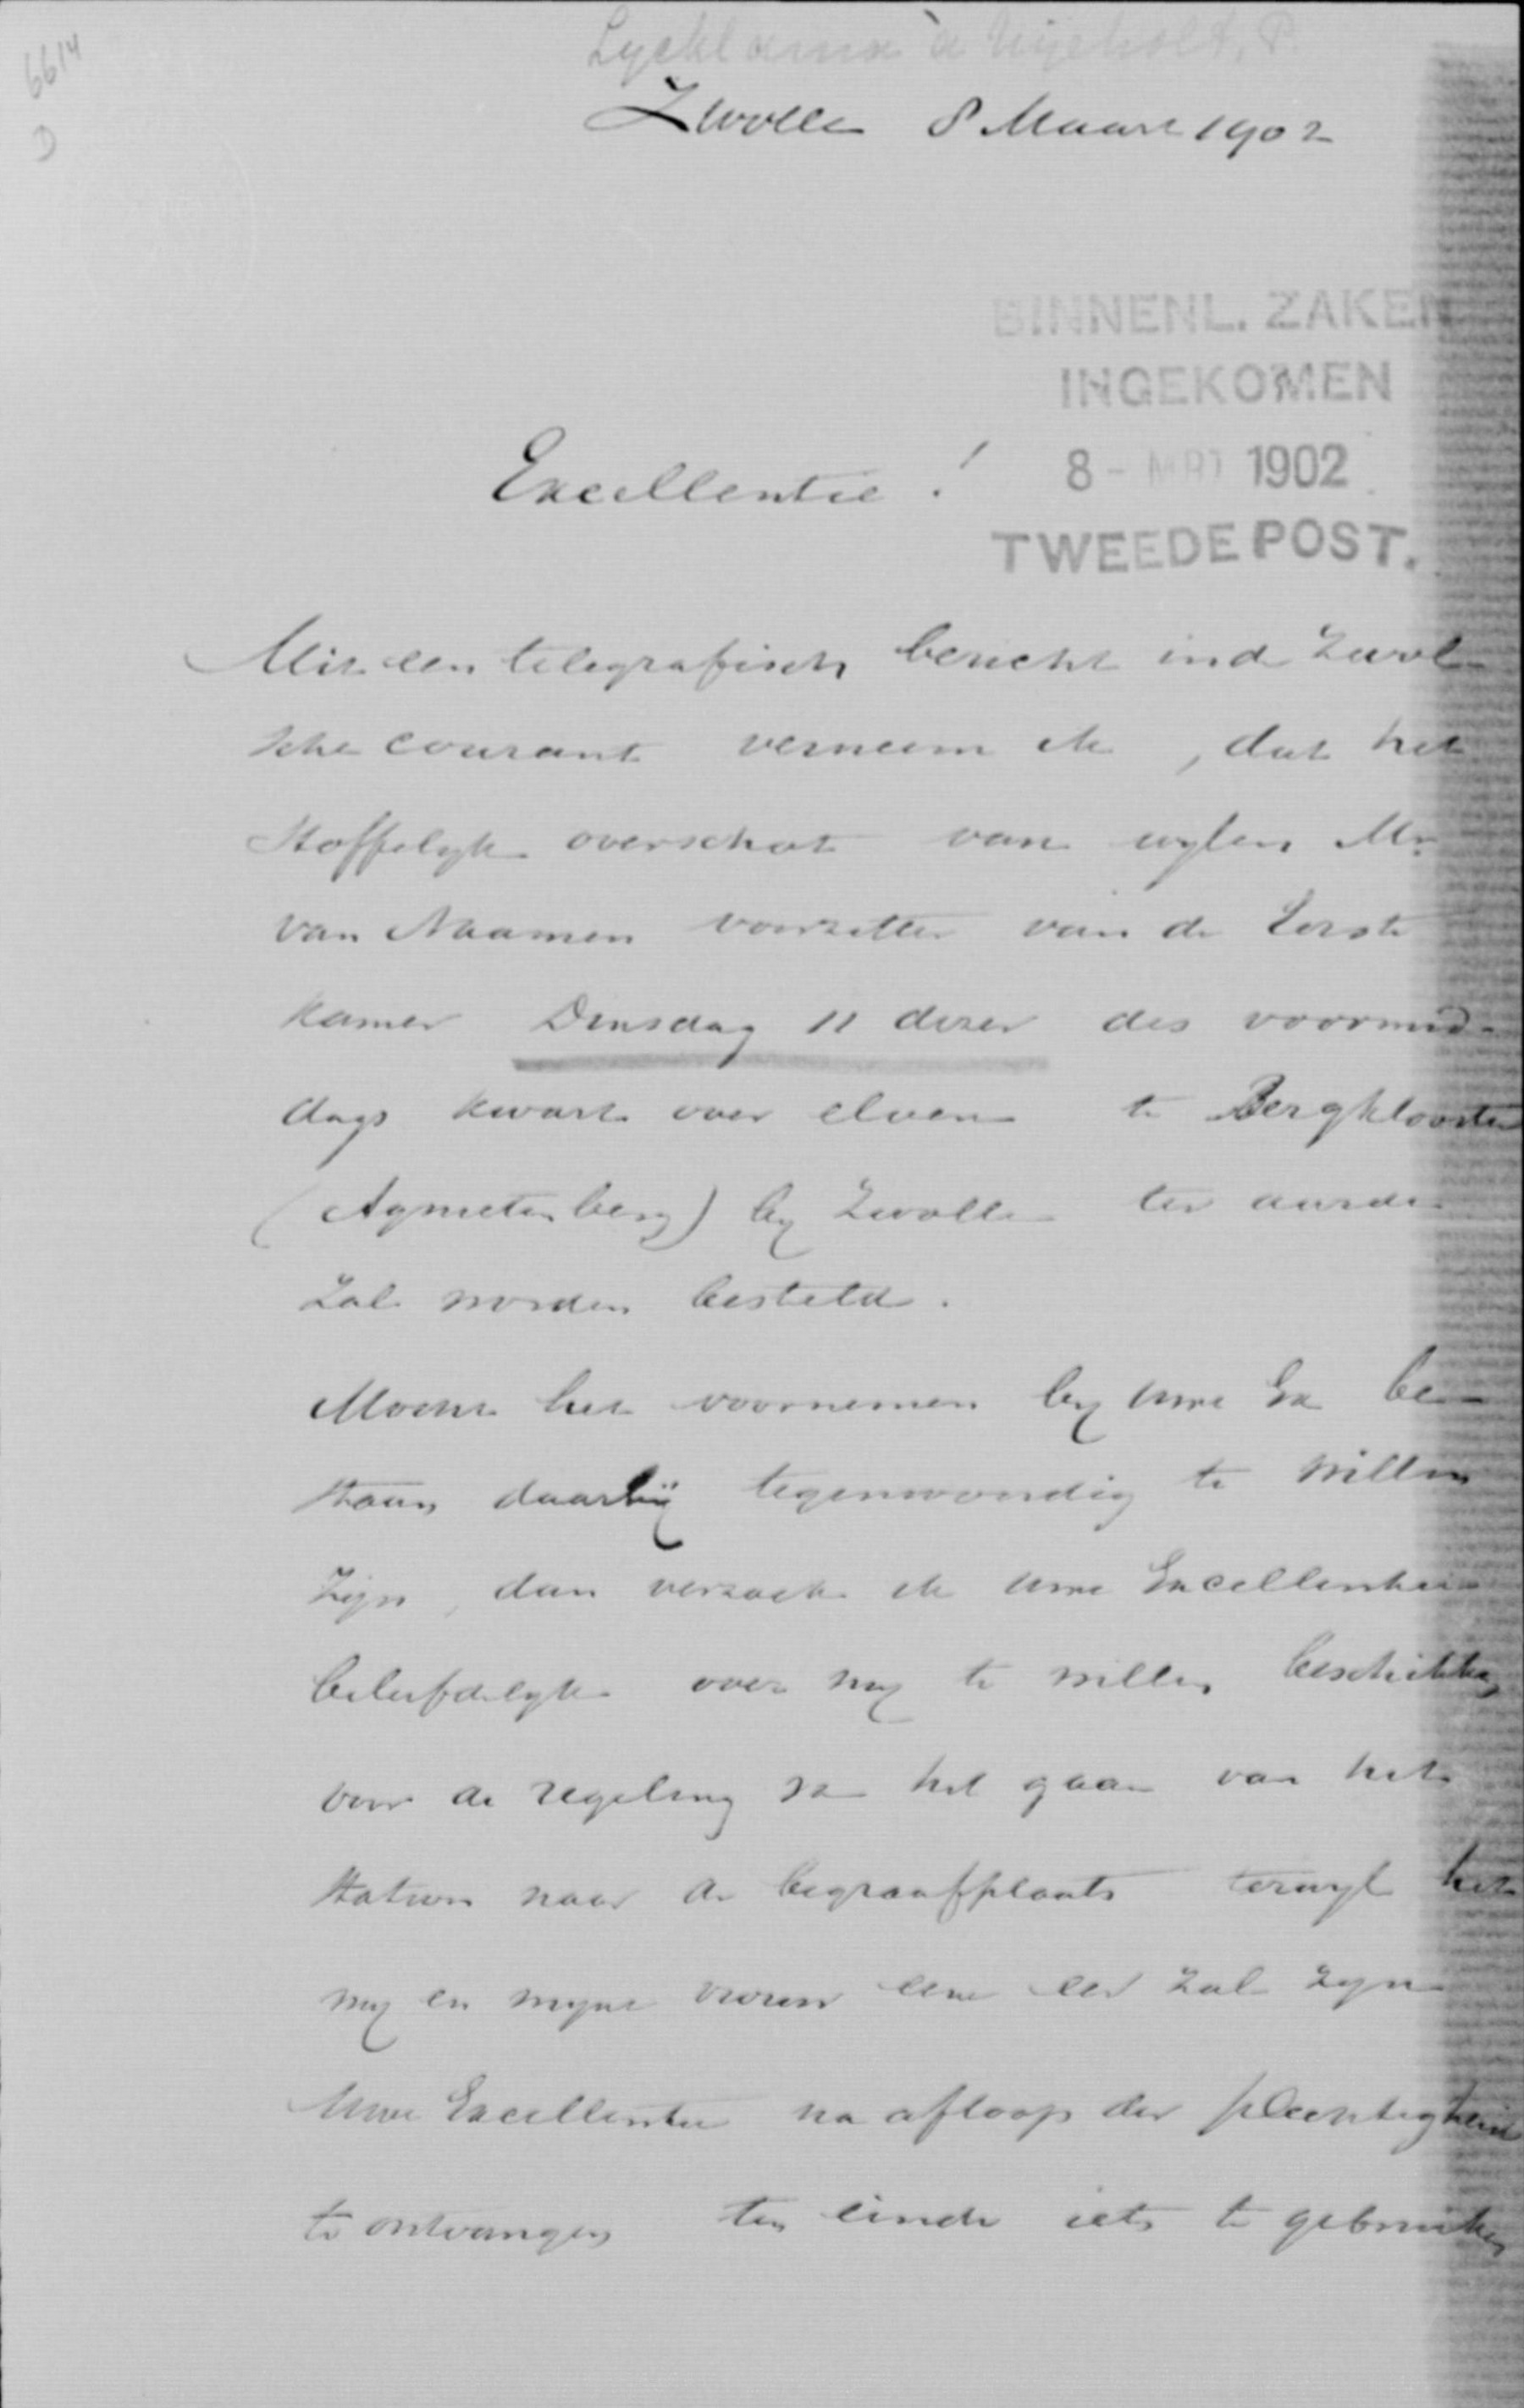 6614
D
Lycklama à Nijeholt, P
Zwolle 8 Maart 1902
BINNENL. ZAKEN
INGEKOMEN
8 - MRT 1902
TWEEDE POST.
Excellentie!
Uit een telegrafisch bericht in de Zwol-
sche courant verneem ik, dat het
stoffelyk overschot van wylen Mr.
van Naamen voorzitter van de Eerste
Kamer Dinsdag 11 dezer des voormid-
dags kwart over elven te Bergklooster
(Agnietenberg) by Zwolle ter aarde
zal worden besteld.
Mocht het voornemen by Uwe Ex be-
staan daarbij tegenwoordig te willen
zijn, dan verzoek ik Uwe Excellentie
beleefdelyk over my te willen beschikken
voor de regeling van het gaan van het
station naar de begraafplaats terwyl het
my en myne vrouw eene eer zal zyn
Uwe Excellentie na afloop der plechtigheid
te ontvangen ten einde iets te gebruiken